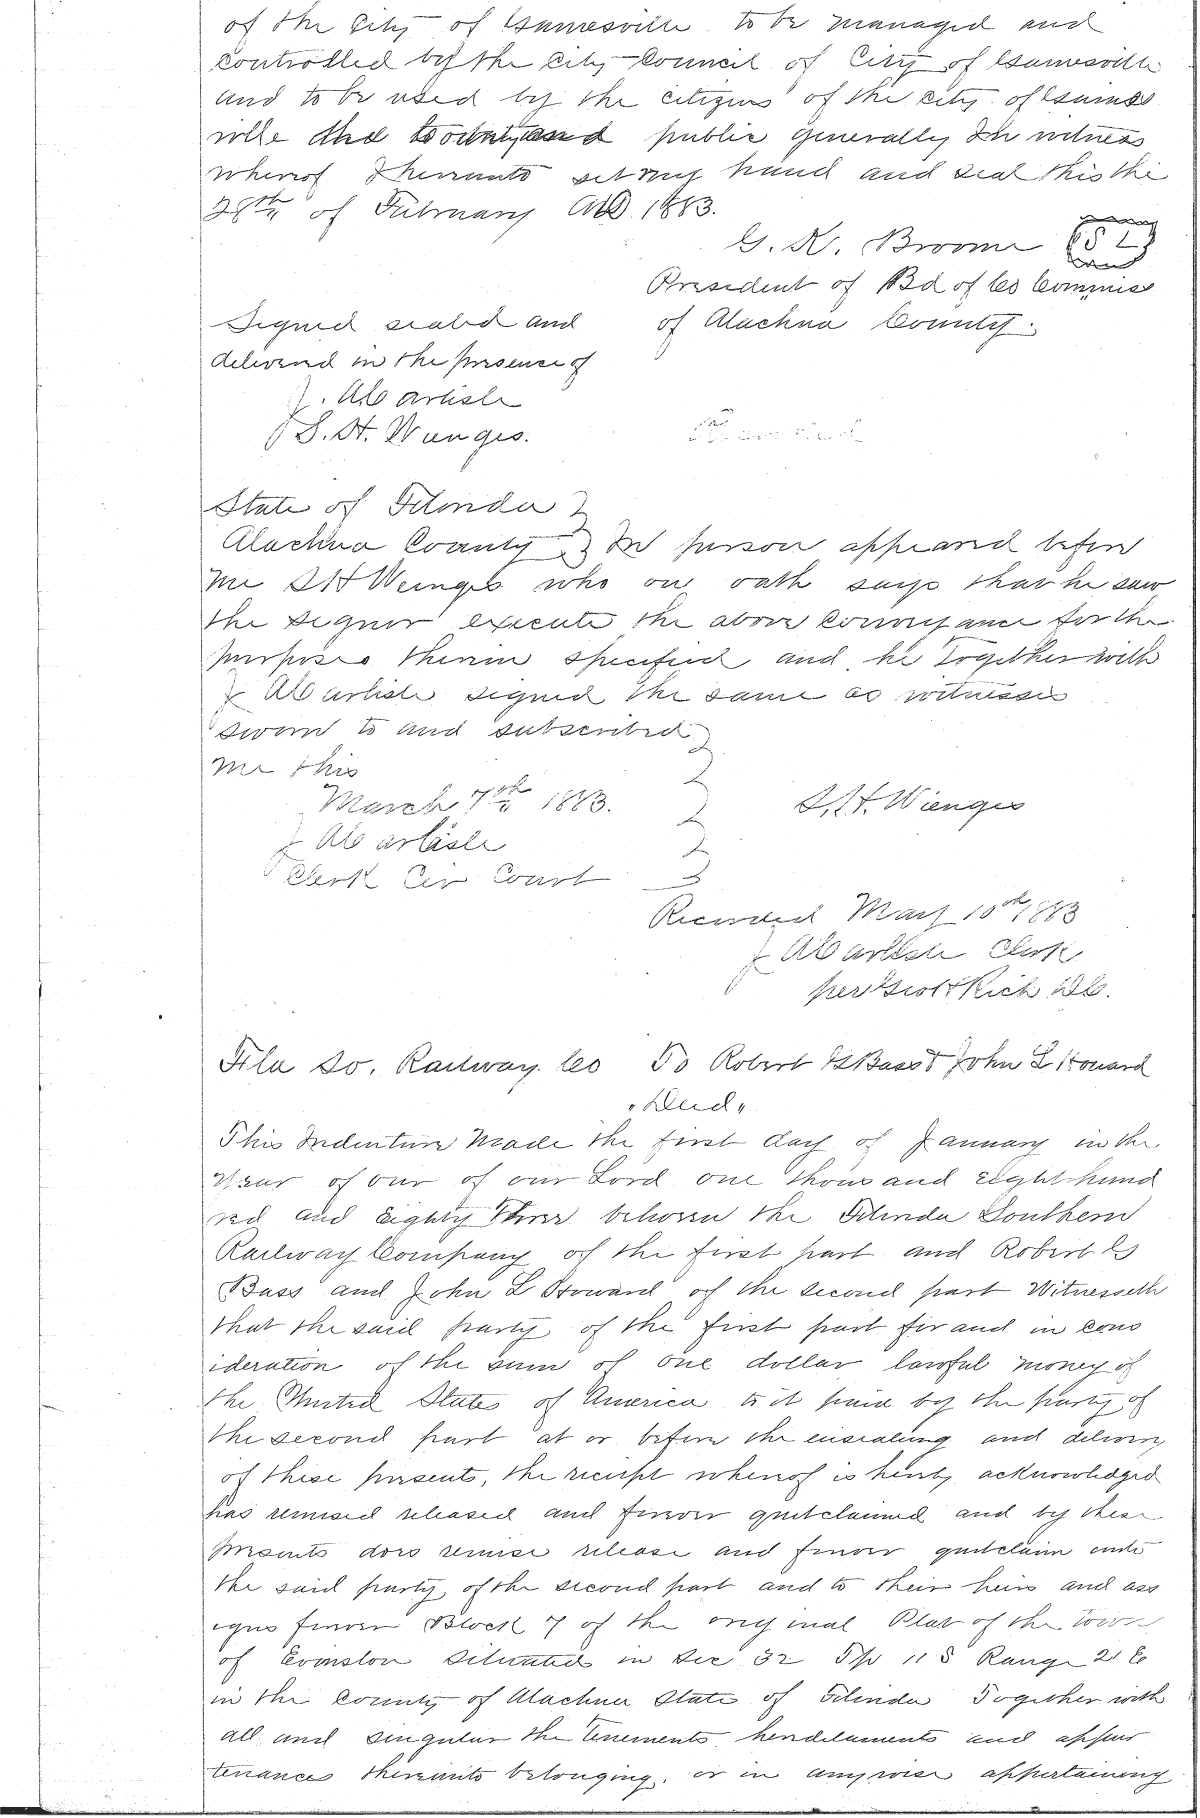 of the City of Gainesville to be managed and
controlled by the City Council of City of Gainesville
and to be used by the citizens of the city of Gaines
ville the County and public generally In witness
whereof I hereunto set my hand and seal this the
28th of February AD. 1883.
G. K. Broome
President of Bd of Co Commis
Signed sealed and of Alachua County.
delivered in the presence of
J. A Carlisle
S. H. Wienges.
State of Florida
Alachua County In person appeared before
me S H Wienges who on oath says that he saw
the signor execute the above conveyance for the
purposes therein specified and he Together with
J A Carlisle signed the same as witnesses
Sworn to and subscribed
me this
March 7th 1883. S. H. Wienges
J A Carlisle
Clerk Cir Court
Recorded May 10th 1883
J A Carlisle Clerk
per Rich DC.
Fla So. Railway Co To Robert G Bass & John L Howard
"Deed"
This Indenture Made the first day of January in the
Year of our of our Lord one thousand eight hund
red and Eighty Three between the Florida Southern
Railway Company of the first part and Robert G
Bass and John L Howard of the second part Witnesseth
that the said party of the first part for and in cons
ideration of the sum of one dollar lawful money of
the United States of America to it paid by the party of
the second part at or before the ensealing and delivery
of these presents, the receipt whereof is hereby acknowledged
has remised released and forever quitclaimed and by these
presents does remise release and forever quitclaim unto
the said party of the second part and to their heirs and ass
igns forever Block 7 of the original Plat of the Town
of Evinston situated in Sec 32 Tp 11 S Range 21 E
in the County of Alachua State of Florida Together with
all and singular the tenements hereditaments and appur
tenances thereunto belonging. or in anywise appertaining